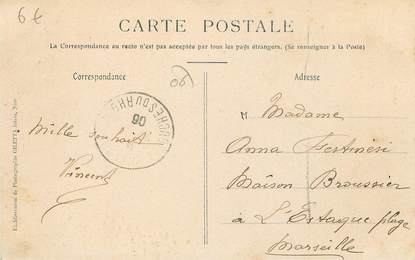 6€
CARTE POSTALE
La Correspondance au recto n'est pas acceptée par tous les pays étrangers. (Se renseigner à la Poste)
Correspondance
Adresse
06
BOUCHES-DU-RH
06
Mille souhaits
Vincent
Madame
Anna Festinesi
Maison Broussier
à L'Estaque plage
Marseille
Établissement de Photographie GILETTA frères, Nice